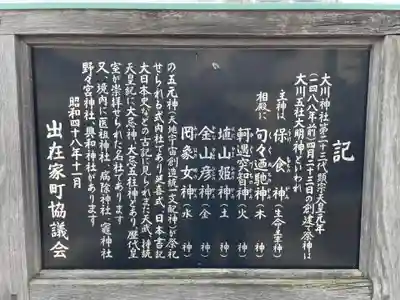 記
大川神社は第二十三代顕宗天皇元年
(一四八八年前)四月二十三日の創建で祭神は
大川五社大明神といわれ
主神は 保食神(生命主宰神)
相殿に
句々廼馳神(木神)
軻遇空智神(火神)
埴山姫神(土神)
金山彦神(金神)
罔象女神(水神)
の五元神(天地宇宙創造統一支配神)が祭祀
せられる式内社であり延喜式、日本書記
大日本史などの古記に見られまた天武、持統
天皇記に大忌神、大忌五柱神とあり歴代皇
室が崇拝せられた名社であります
又、境内に医祖神社、病除神社、竈神社
野々宮神社、興和神社があります
昭和四十八年十一月
出在家町協議会